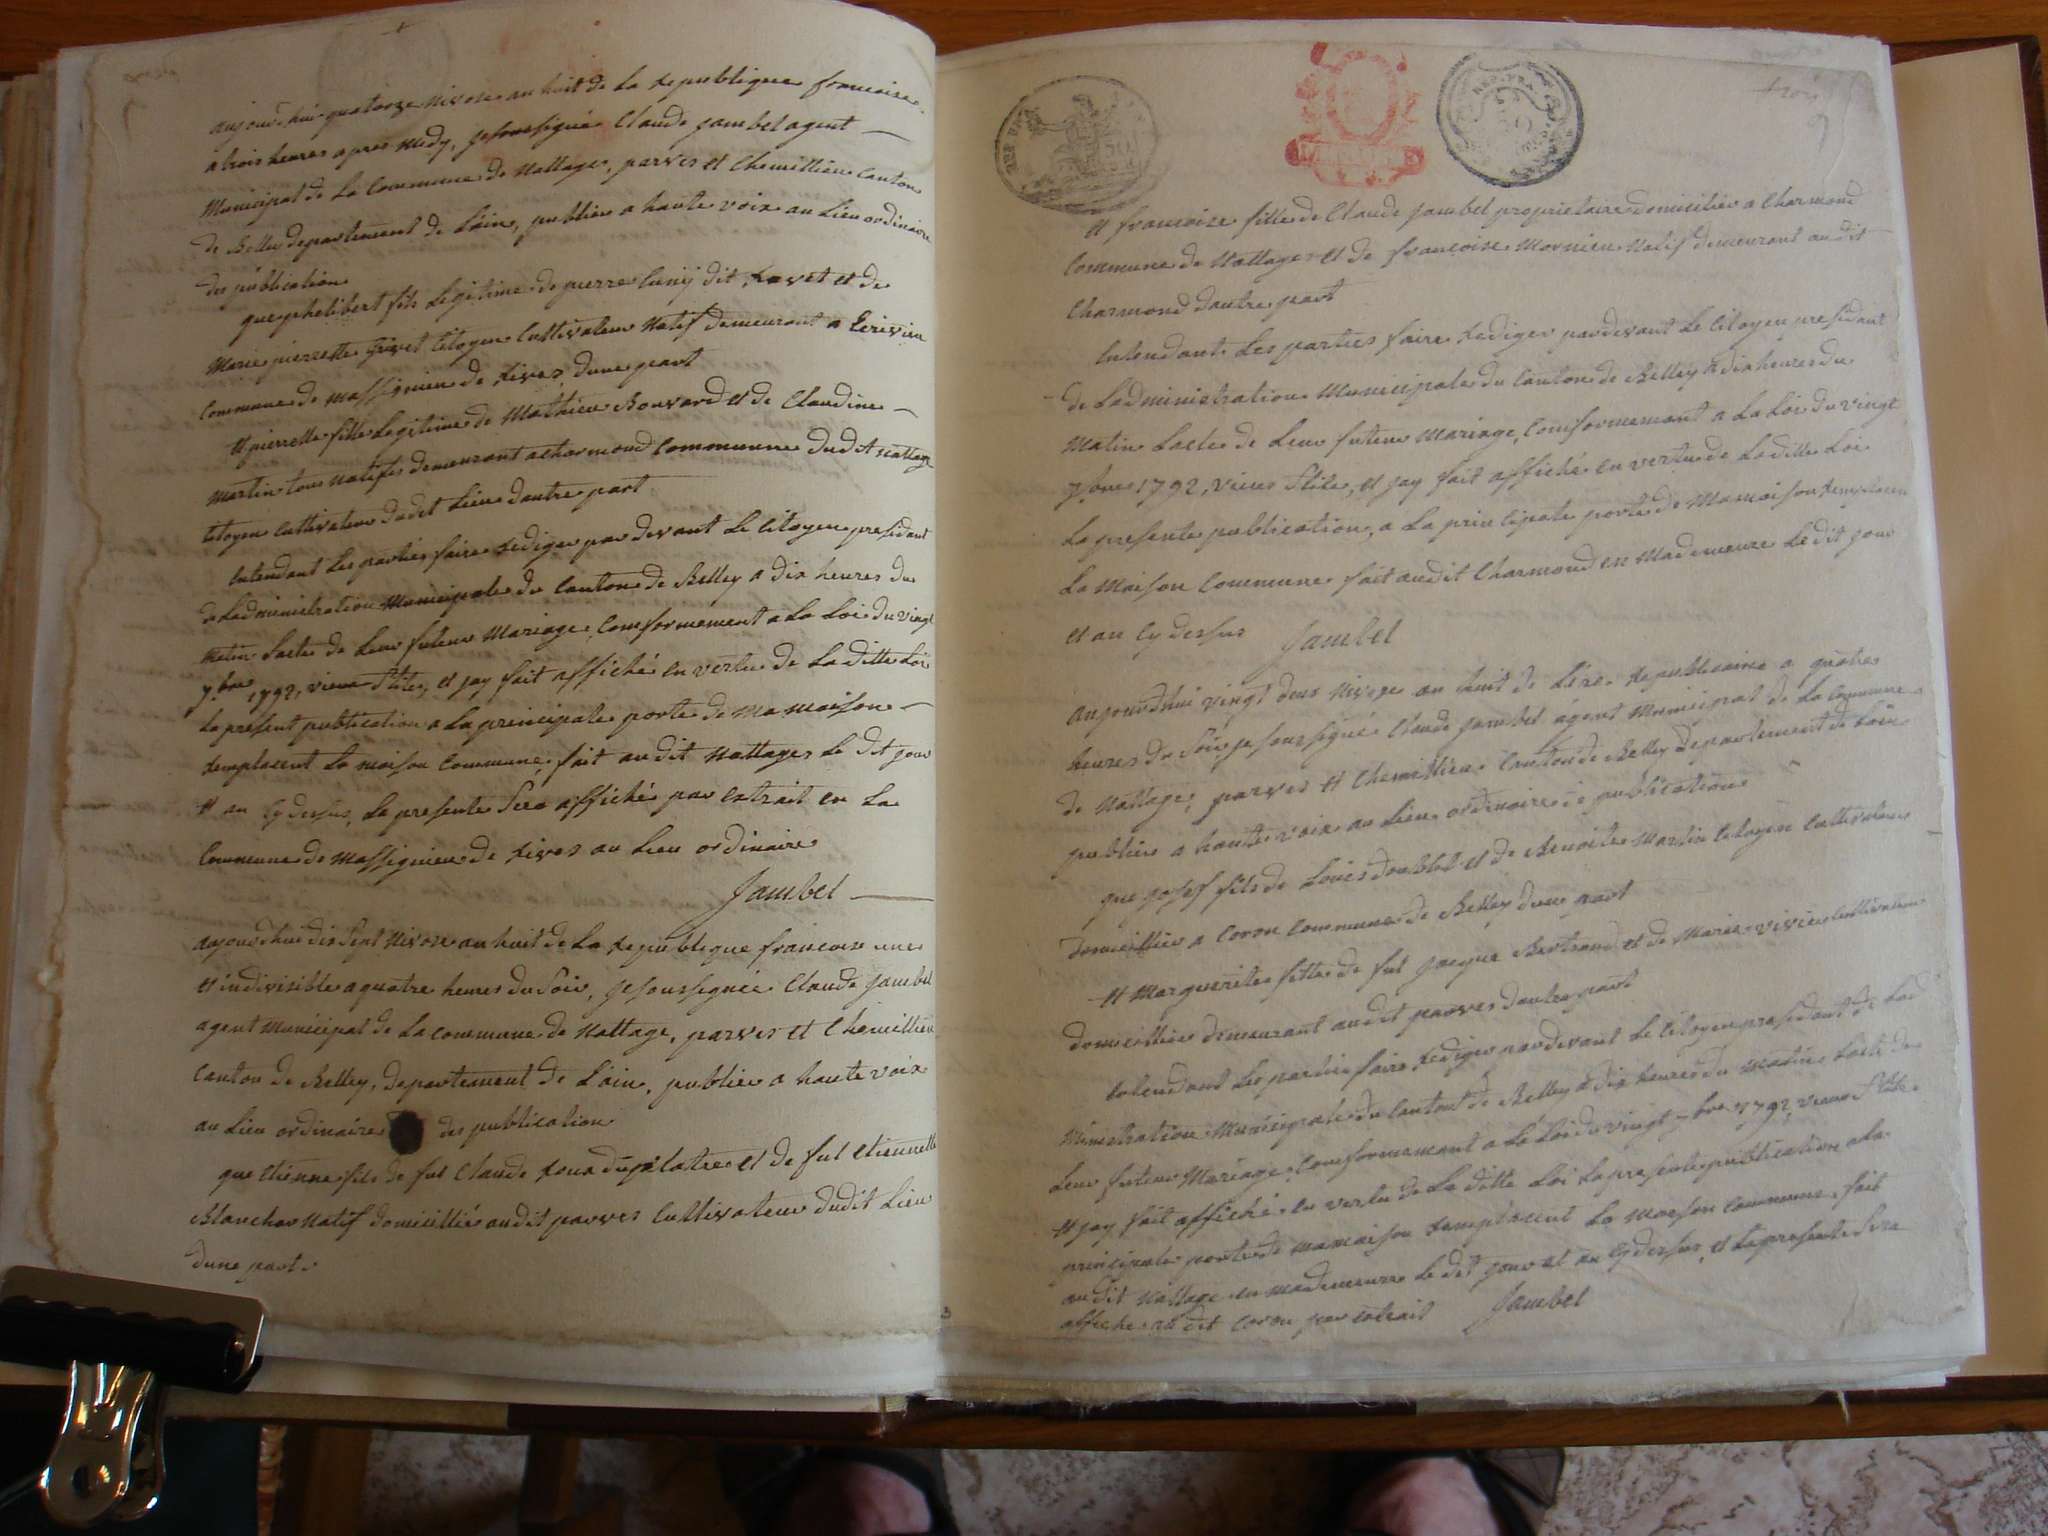 aujourdhui quatorze Nivose an huit de La Republique francoise
a trois heures apres Midy, je soussigné Claude Jambel agent
Municipal de La Commune de Nattage, parves et Chemillieu Canton
de Belley departement de Lain, publier a haute voix au Lieu ordinaire
des publication
que philibert fils Legitime de pierre Cuny dit et de
Marie pierrette Citoyen Cultivateur Natif demeurant a Ecrivieu
Commune de Massignieu de Rives dune part
et pierrette fille Legitime de Mathieu Bouvard et de Claudine
Martin tous Natifs demeurant a charmond Commune dudit Nattage
Citoyen Cultivateur dudit Lieu dautre part
Entendant Les parties faire Rediger par devant Le Citoyen presidant
de Ladministration Municipale du Canton de Belley a dix heures du
Matin Lacte de Leur futeur Mariage Comformement a La Loi du vingt
7bre 1792, vieux Stile, et jay fait affiché en vertu de La ditte Loi
La present publication a La principale porte de Ma maison
Remplacent La maison Commune, fait audit Nattages Le dit jour
et an Cy dessus, La presente Sera affiché par extrait en La
Commune de Massignieu de Rives au Lieu ordinaire
Jambel
aujourdhui dix Sept Nivose an huit de La Republique francoise une
et indivisible a quatre heures du Soir, je soussignée Claude Jambel
agent Municipal de La commune de Nattage, parves et Chemillieu
Canton de Belley, departement de Lain, publier a haute voix
au Lieu ordinaire des publication
que Etienne fils de fut Claude Roux et de fut Etiennette
Blanchar Natif domicillié audit parves Cultivateur dudit Lieu
dune part
trois
REP. FRA.
et francoise fille de Claude Jambel proprietaire domicilier a Charmond
Commune de Nattages et de francoise Mornieu Natif demeurant audit
Charmond dautre part
Entendant Les parties faire Rediger pardevant Le Citoyen presidant
de Ladministration Municipale du Canton de Belley a dix heures du
Matin Lacte de Leur futeur Mariage, Comformement a La Loi du vingt
7bre 1792, vieux Stile, et jay fait affiché en vertu de Laditte Loi
La presente publication, a La principale porte de Ma maison Remplacen
La Maison Commune fait audit Charmond en Ma demeure Le dit jour
et an Cy dessus Jambel
aujourdhui vingt deux Nivose an huit de Lere Republicaine a quatre
heures du Soir, je soussigné Claude Jambel agent Municipal de La Commune
de Nattage, parves et Chemillieu Canton de Belley departement de Lain
publier a haute voix au Lieu ordinaire de publication
que Josef fils de Louis Doublet et de Benoite Martin Citoyen Cultivateur
domicillier a Coron Commune de Belley dune part
et Marguerite fille de fut Jacque Bertrand et de Marie Cultivateur
domicillier demeurant audit parves dautre part
Entendant Les parties faire Rediger pardevant Le Citoyen presidant de Lad
Ministration Municipale du Canton de Belley a dix heures du Matin Lacte de
Leur futeur Mariage, Comformement a La Loi du vingt 7bre 1792, vieux Stile
et jay fait affiché en vertu de La ditte Loi La presente publication a La
principale porte de Ma maison Remplacent La Maison Commune, fait
audit Nattage en Ma demeure Le dit jour et an Cy dessus, et La presente Sera
affiche au dit Coron par extrait Jambel
3